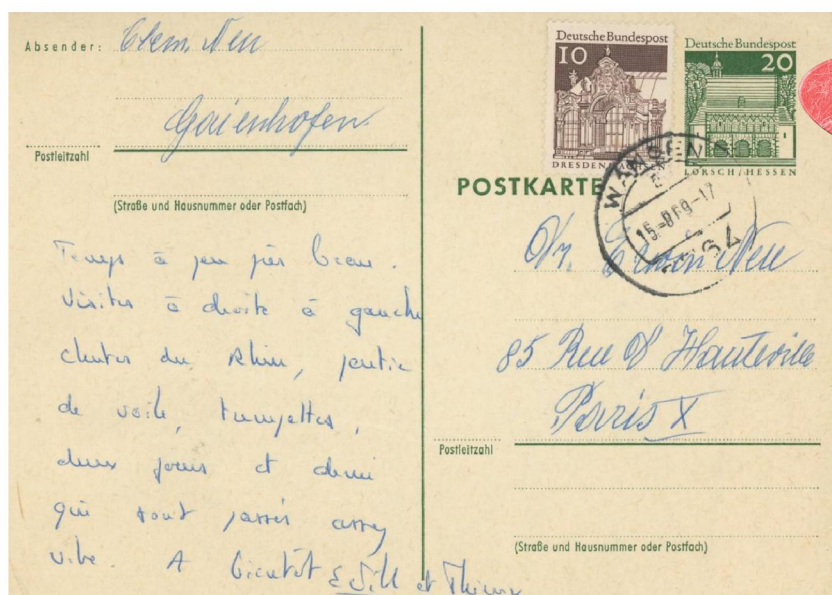 Absender: Clem. Neu
Gaienhofen
Postleitzahl
(Straße und Hausnummer oder Postfach)
Temps à peu près beau.
Visites à droite à gauche
chutes du Rhin, partie
de voile, trempettes,
deux jours et demi
qui sont passés assez
vite. A bientôt Edith et Thierry
Deutsche Bundespost
10
DRESDEN
Deutsche Bundespost
20
LORSCH/HESSEN
POSTKARTE
WANGEN
15.-8.69-17
Dr. Neu
85 Rue d'Hauteville
Paris X
Postleitzahl
(Straße und Hausnummer oder Postfach)